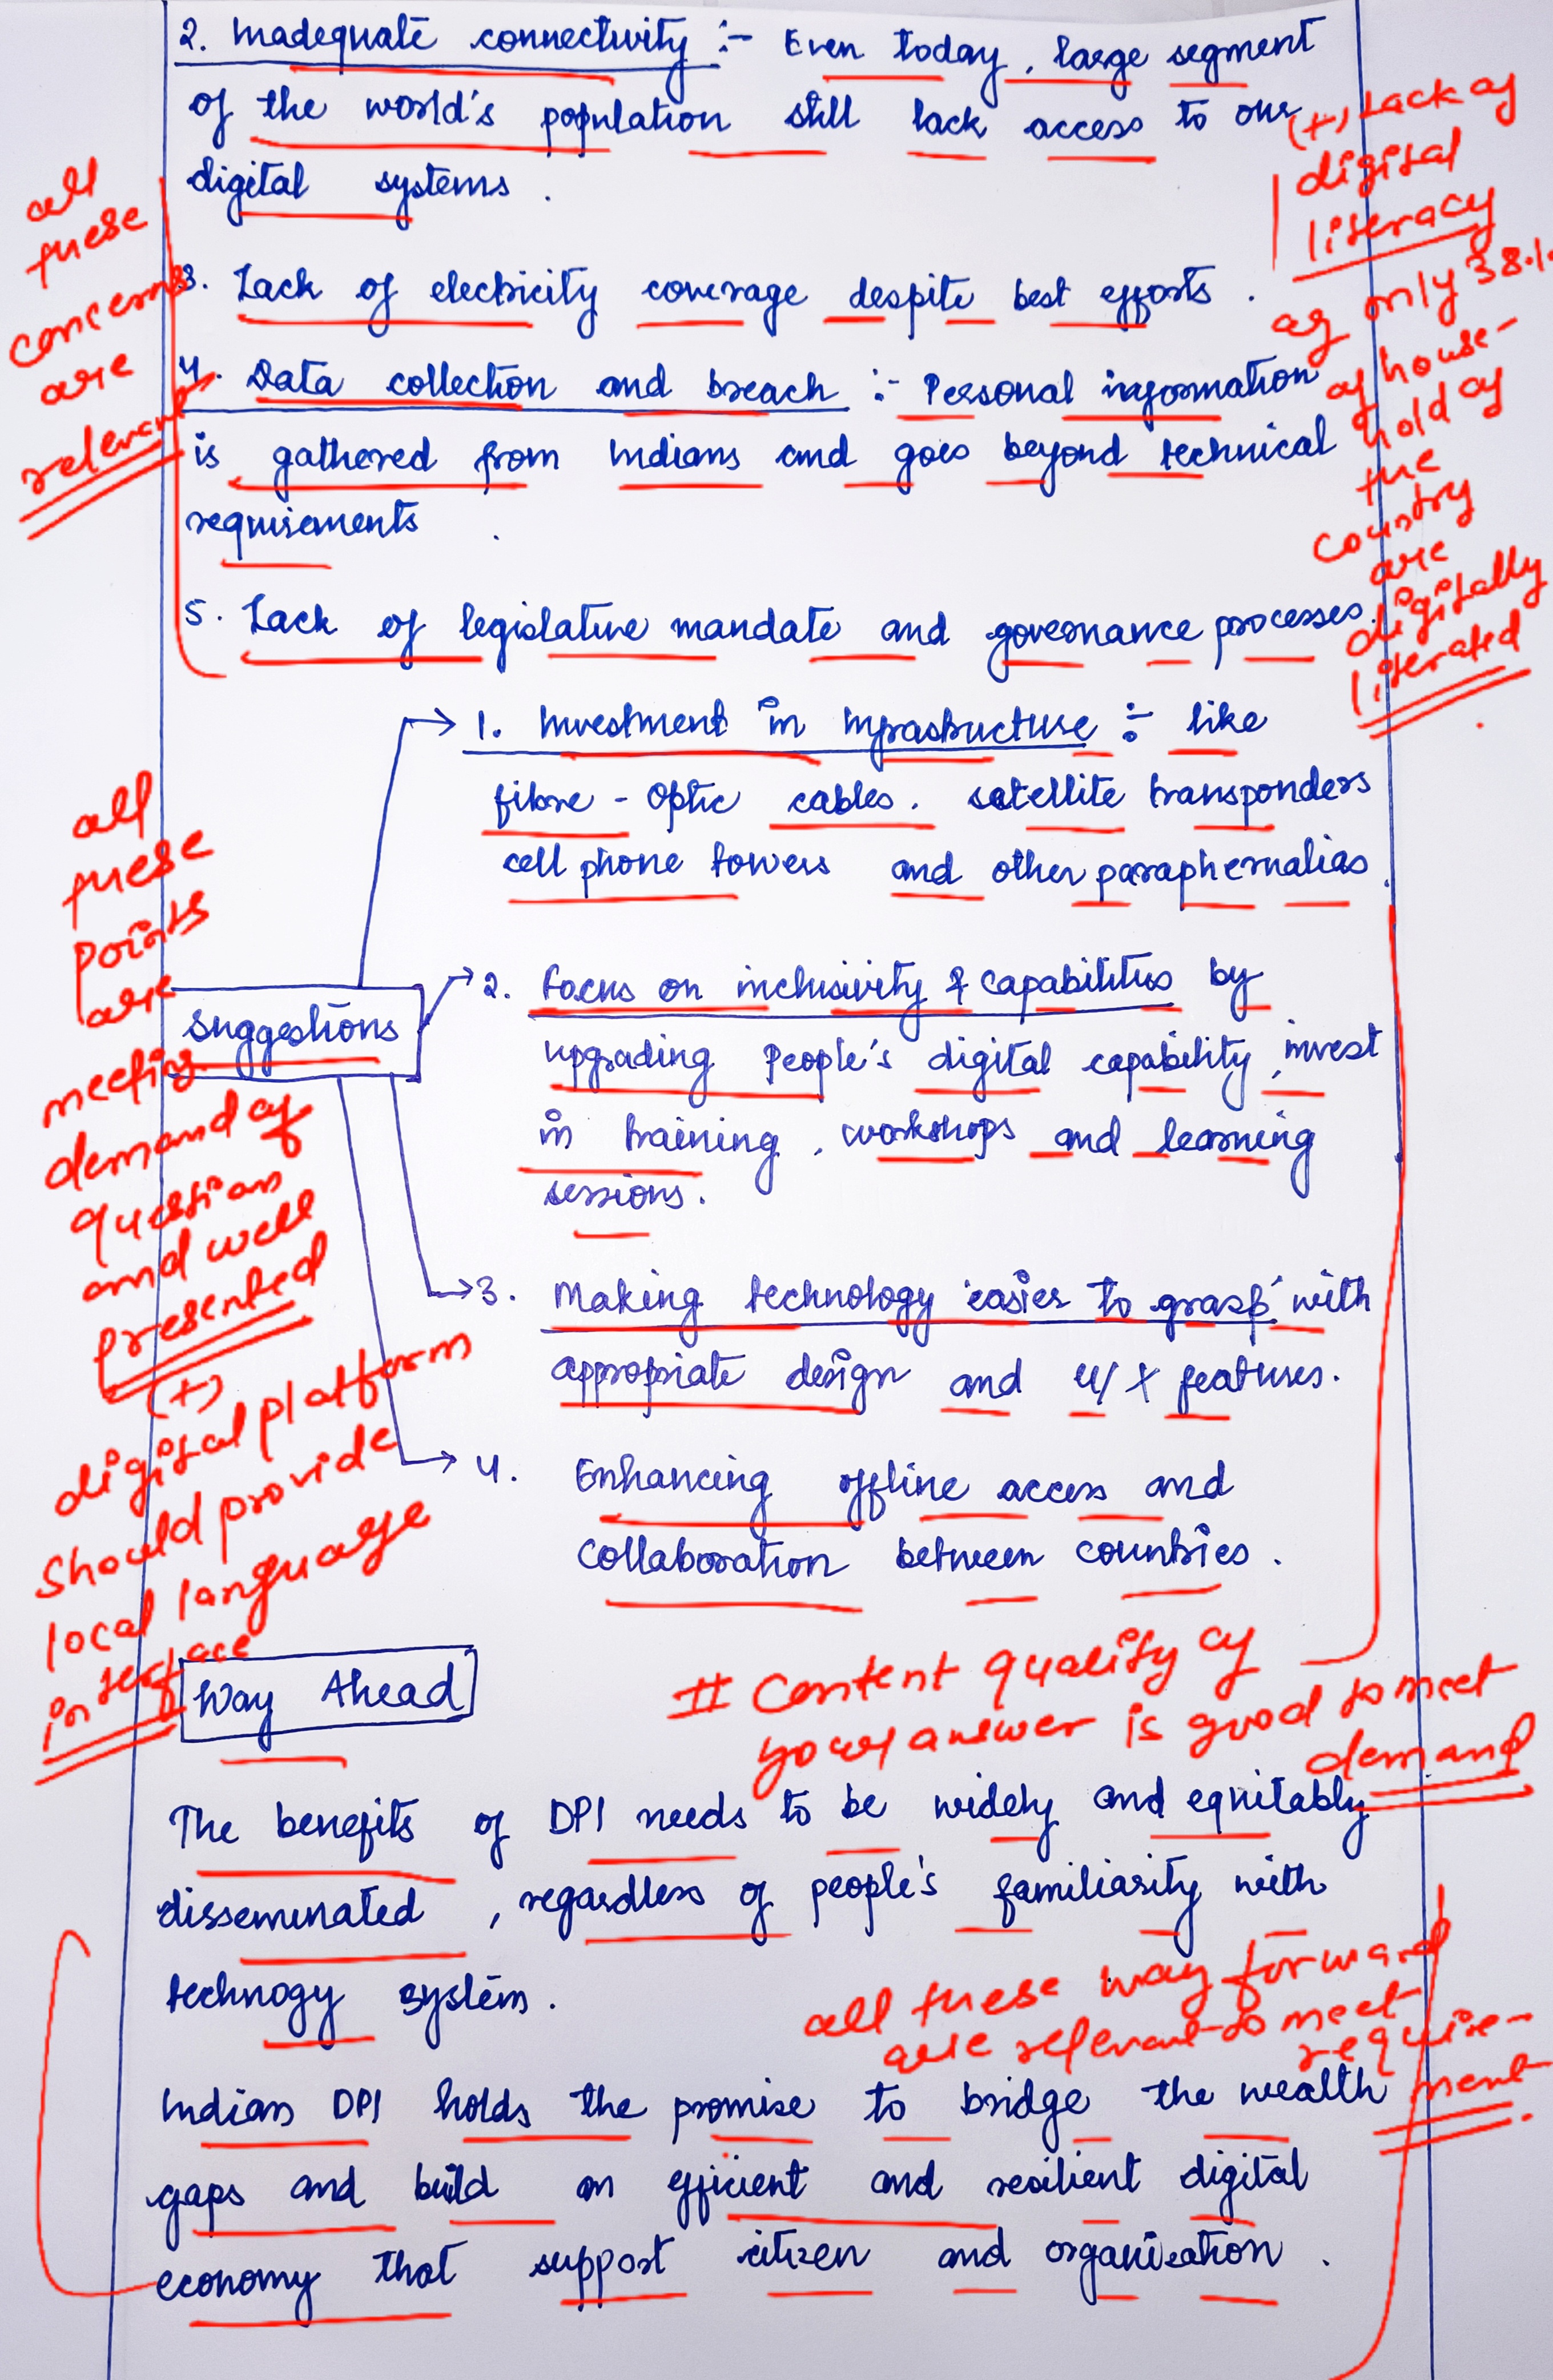 2. Inadequate connectivity :- Even today, large segment
of the world's population still lack access to our
digital systems.
(+) Lack of
digital
literacy
as only 38.1.
of house-
hold of
the
country
are
digitally
literated
all
these
concerns
are
relevant
3. Lack of electricity coverage despite best efforts.
4. Data collection and breach :- Personal information
is gathered from Indians and goes beyond technical
requirements.
5. Lack of legislative mandate and governance processes.
1. Investment in Infrastructure :- like
fibre-optic cables. satellite transponders
cell phone towers and other paraphernalias.
all
these
points
are
meeting
demand of
question
and well
presented
(+)
digital platform
should provide
local language
interface
Suggestions
2. Focus on inclusivity & capabilities by
upgrading people's digital capability, invest
in training, workshops and learning
sessions.
3. Making technology 'easier to grasp' with
appropriate design and U/X features.
4. Enhancing offline access and
collaboration between countries.
# Content quality of
your answer is good to meet
demand
Way Ahead
The benefits of DPI needs to be widely and equitably
disseminated, regardless of people's familiarity with
technogy system.
all these way forward
are relevant to meet
require-
ment
Indian DPI holds the promise to bridge the wealth
gaps and build an efficient and resilient digital
economy that support citizen and organisation.